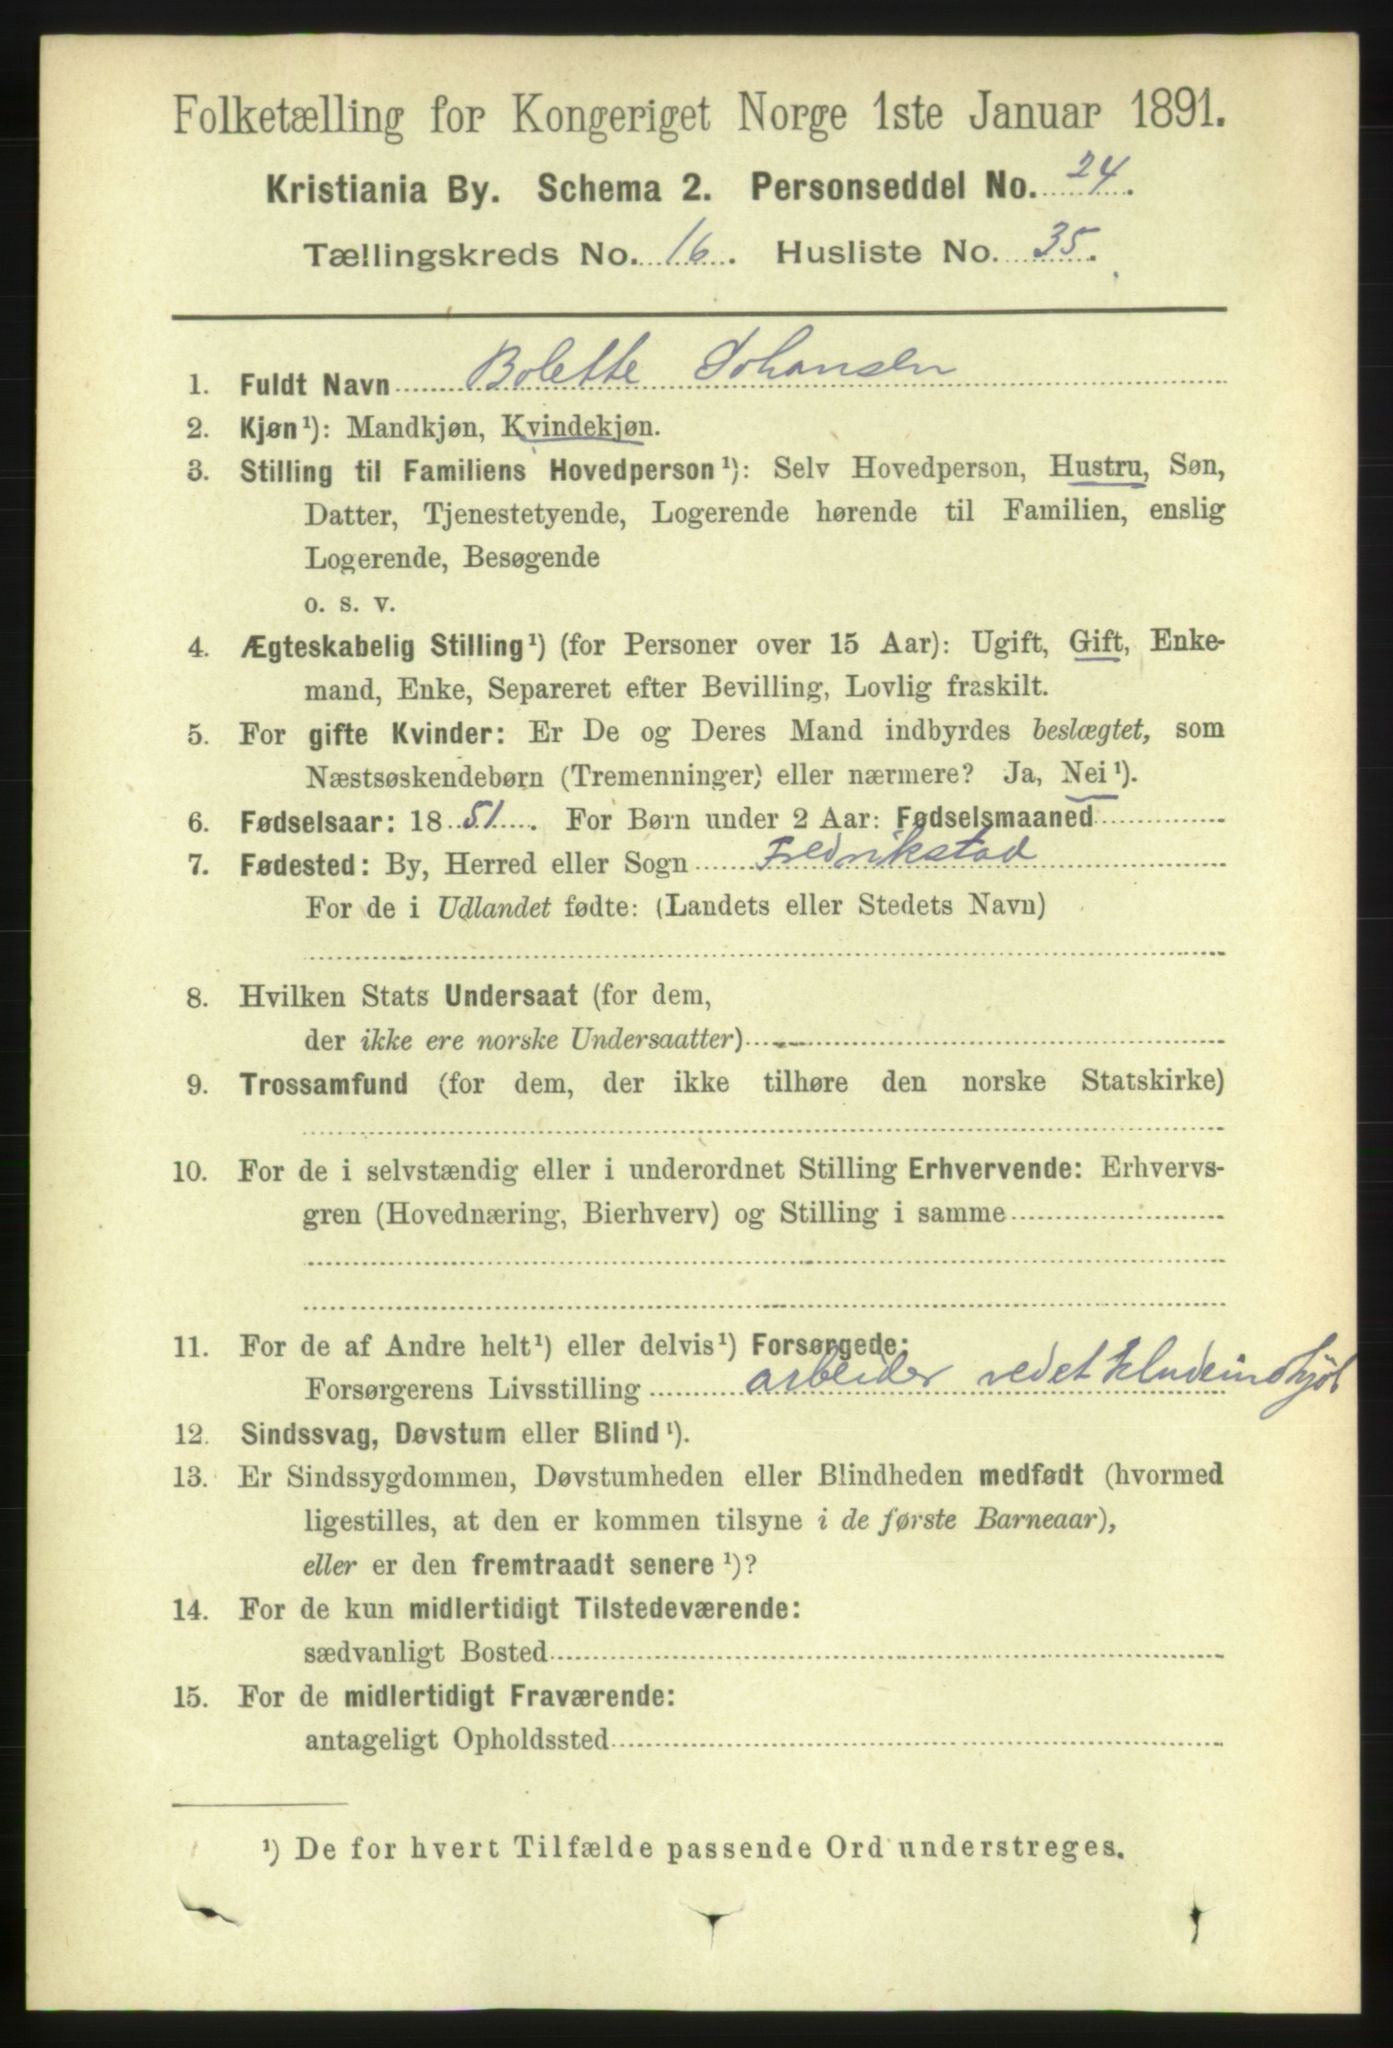 Folketælling for Kongeriget Norge 1ste Januar 1891.
Kristiania By. Schema 2. Personseddel No. 24.
Tællingskreds No. 16. Husliste No. 35.
1. Fuldt Navn Bolette Johansen
2. Kjøn¹): Mandkjøn, Kvindekjøn.
3. Stilling til Familiens Hovedperson¹): Selv Hovedperson, Hustru, Søn,
Datter, Tjenestetyende, Logerende hørende til Familien, enslig
Logerende, Besøgende
o. s. v.
4. Ægteskabelig Stilling¹) (for Personer over 15 Aar): Ugift, Gift, Enke-
mand, Enke, Separeret efter Bevilling, Lovlig fraskilt.
5. For gifte Kvinder: Er De og Deres Mand indbyrdes beslægtet, som
Næstsøskendebørn (Tremenninger) eller nærmere? Ja, Nei¹).
6. Fødselsaar: 1851. For Børn under 2 Aar: Fødselsmaaned
7. Fødested: By, Herred eller Sogn Fredrikstad
For de i Udlandet fødte: (Landets eller Stedets Navn)
8. Hvilken Stats Undersaat (for dem,
der ikke ere norske Undersaatter)
9. Trossamfund (for dem, der ikke tilhøre den norske Statskirke)
10. For de i selvstændig eller i underordnet Stilling Erhvervende: Erhvervs-
gren (Hovednæring, Bierhverv) og Stilling i samme
11. For de af Andre helt¹) eller delvis¹) Forsørgede:
Forsørgerens Livsstilling arbeider ved et
12. Sindssvag, Døvstum eller Blind¹).
13. Er Sindssygdommen, Døvstumheden eller Blindheden medfødt (hvormed
ligestilles, at den er kommen tilsyne i de første Barneaar),
eller er den fremtraadt senere¹)?
14. For de kun midlertidigt Tilstedeværende:
sædvanligt Bosted
15. For de midlertidigt Fraværende:
antageligt Opholdssted
¹) De for hvert Tilfælde passende Ord understreges.